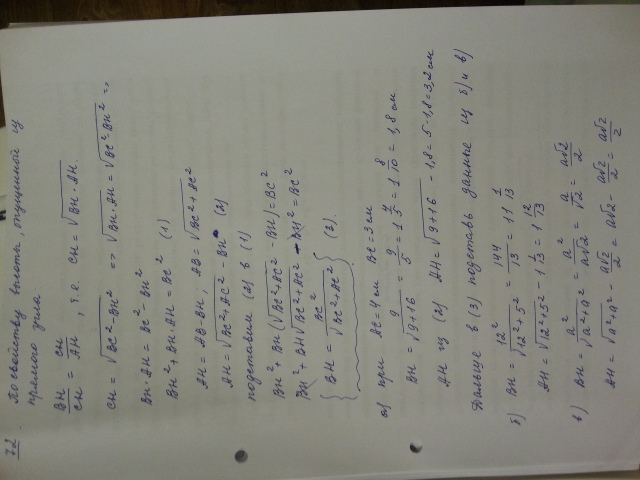 72. По свойству высоты, опущенной из
прямого угла
BH/CH = CH/AH, т.е. CH = √(BH·AH).
CH = √(BC²-BH²) => √(BH·AH) = √(BC²-BH²) =>
BH·AH = BC² - BH²
BH² + BH·AH = BC² (1)
AH = AB-BH; AB = √(BC²+AC²)
AH = √(BC²+AC²) - BH (2)
подставим (2) в (1)
BH² + BH(√(BC²+AC²) - BH) = BC²
BH² + BH√(BC²+AC²) - BH² = BC²
BH = BC²/√(BC²+AC²) (3).
а) при AC=4см BC=3см
BH = 9/√(9+16) = 9/5 = 1 4/5 = 1 8/10 = 1,8 см
AH из (2) AH = √(9+16) - 1,8 = 5-1,8 = 3,2см
Дальше в (3) подставь данные из б) и в)
б) BH = 12²/√(12²+5²) = 144/13 = 11 1/13
AH = √(12²+5²) - 11 1/13 = 1 12/13
в) BH = a²/√(a²+a²) = a²/a√2 = a/√2 = a√2/2
AH = √(a²+a²) - a√2/2 = a√2 - a√2/2 = a√2/2